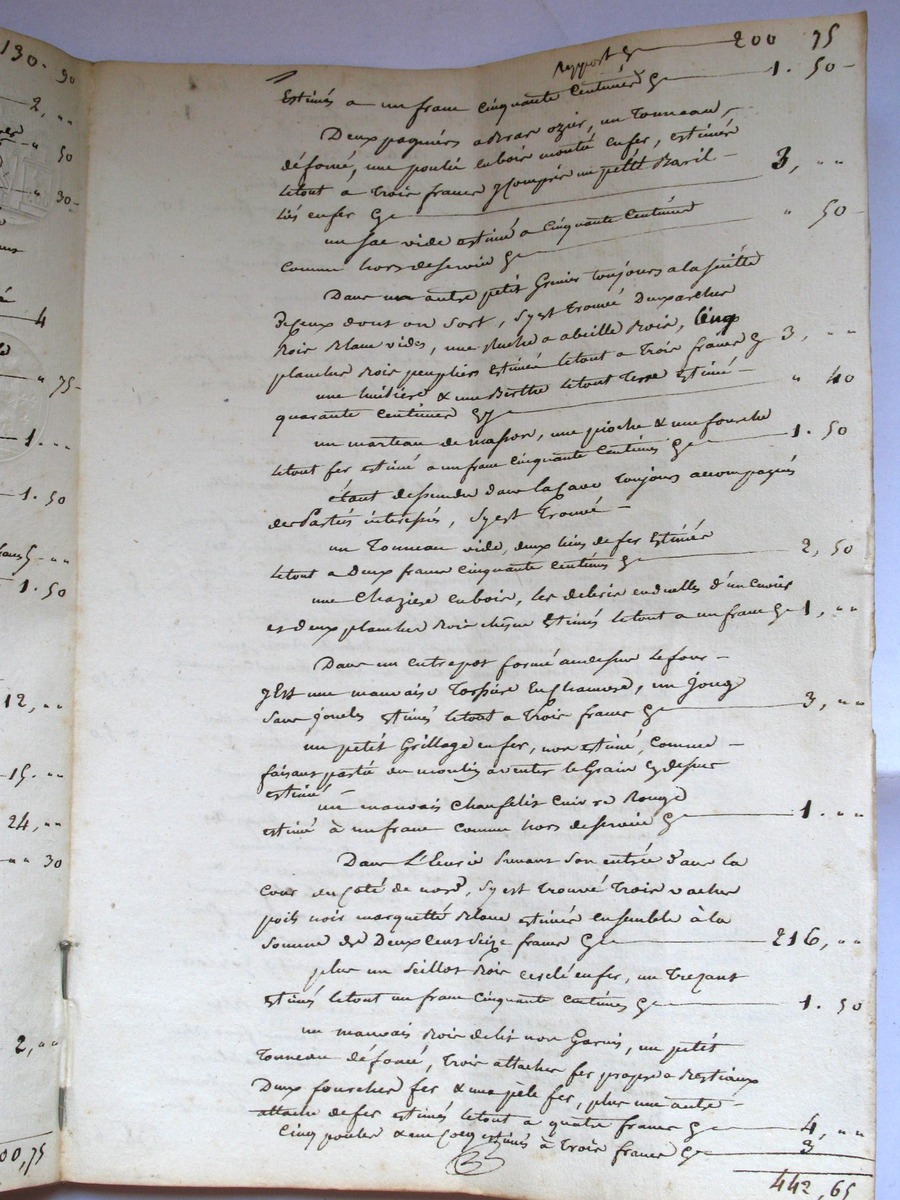 130. 90
2, ""
" 50
" 30
4
" 75
1. ""
1. 50
5. ""
1. 50
12, ""
15. ""
24, ""
"" 30
2, ""
00,75
Report Ge 200 75
Estimés a un franc cinquante centimes Ge 1. 50
Deux pagniers a bras ozier, un Tonneau
défoncé, une poulie en bois monté en fer, estimés
letout a Trois francs y compris un petit Baril
liés en fer Ge 3, ""
un sac vide estimé a cinquante centimes
comme hors de service Ge " 50
Dans un autre petit Grenier toujours a la suitte
de ceux dont on sort, s'y est trouvé Deux arches
Bois Blanc vides, une Ruche a abeille Bois, Cinq
planches Bois peupliers estimés letout a Trois francs Ge 3, ""
une huitiere & une Berthe letout Terre estimé
quarante centimes Ge " 40
un marteau de masson, une pioche & une fourche
letout fer estimé a un franc cinquante centimes Ge 1. 50
étant dessendu dans la cave Toujours accompagnés
des Partiés interessés, s'y est Trouvé
un Tonneau vide, deux liens de fer Estimés
letout a Deux francs cinquante centimes Ge 2, 50
une Chaziere en bois, les debris en duelles d'un Cuvier
et deux planches Bois chêne Estimés letout a un franc Ge 1, ""
Dans un entrepot formé au dessus le four
y Est une mauvaise en chanvre, un Joug
sans Jouclés estimés letout a Trois francs Ge 3, ""
un petit Grillage en fer, non estimé, comme
faisant partié du moulin a venter le Grain cy dessus
estimé
un mauvais chaufelit cuivre Rouge
estimé à un franc comme hors de service Ge 1. ""
Dans L'Ecurie prenant son entrée dans la
cour du coté de nord, s'y est trouvé Trois vaches
poils noir marquetté Blanc estimés ensemble à la
somme de Deux cent seize francs Ge 216, ""
plus un seillot Bois cerclé en fer, un
estimés letout un franc cinquante centimes Ge 1. 50
un mauvais Bois de lit non Garnis, un petit
Tonneau défoncé, Trois attaches fer propre a Bestiaux
Deux fourches fer & une pèle fer, plus une autre
attache de fer estimés letout a quatre francs Ge 4, ""
Cinq poules & un Coq estimés à Trois francs Ge 3
442, 65